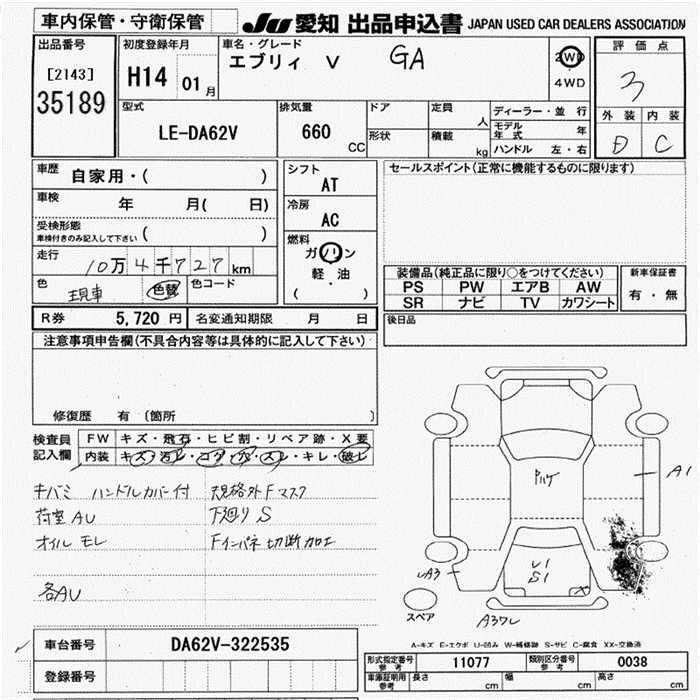 車内保管・守衛保管
JU 愛知 出品申込書 JAPAN USED CAR DEALERS ASSOCIATION
出品番号
[2143]
35189
初度登録年月
H14 01月
車名・グレード
エブリィ V GA
2WD
4WD
評価点
3
外装 内装
D C
型式
LE-DA62V
排気量
660 CC
ドア
形状
定員 人
積載 kg
ディーラー・並行
モデル年式 年
ハンドル 左・右
車歴 自家用・( )
車検 年 月( 日)
受検形態
車検付きのみ記入して下さい ( )
走行 10万4千727km
色 現車 色替 色コード
シフト
AT
冷房
AC
燃料
ガソリン
軽・油
( )
セールスポイント(正常に機能するものに限ります)
装備品(純正品に限り○をつけてください)
PS PW エアB AW
SR ナビ TV カワシート
新車保証書
有・無
R券 5,720円 名変通知期限 月 日
後日品
注意事項申告欄(不具合内容等は具体的に記入して下さい)
修復歴 有 〔箇所 〕
検査員記入欄
FW キズ・飛石・ヒビ割・リペア跡・X要
内装 キズ・汚レ・コゲ・穴・スレ・キレ・破レ
キバミ ハンドルカバー付 規格外Fマスク
荷室AU 下廻りS
オイルモレ Fインパネ切断加工
各AU
Pハゲ
A1
UA3
U1
S1
X
スペア
A3ワレ
A-キズ E-エクボ U-凹み W-補修跡 S-サビ C-腐食 XX-交換済
車台番号 DA62V-322535
登録番号
形式指定番号 参考 11077 類別区分番号 参考 0038
車庫証明用 参考 長さ cm 幅 cm 高さ cm